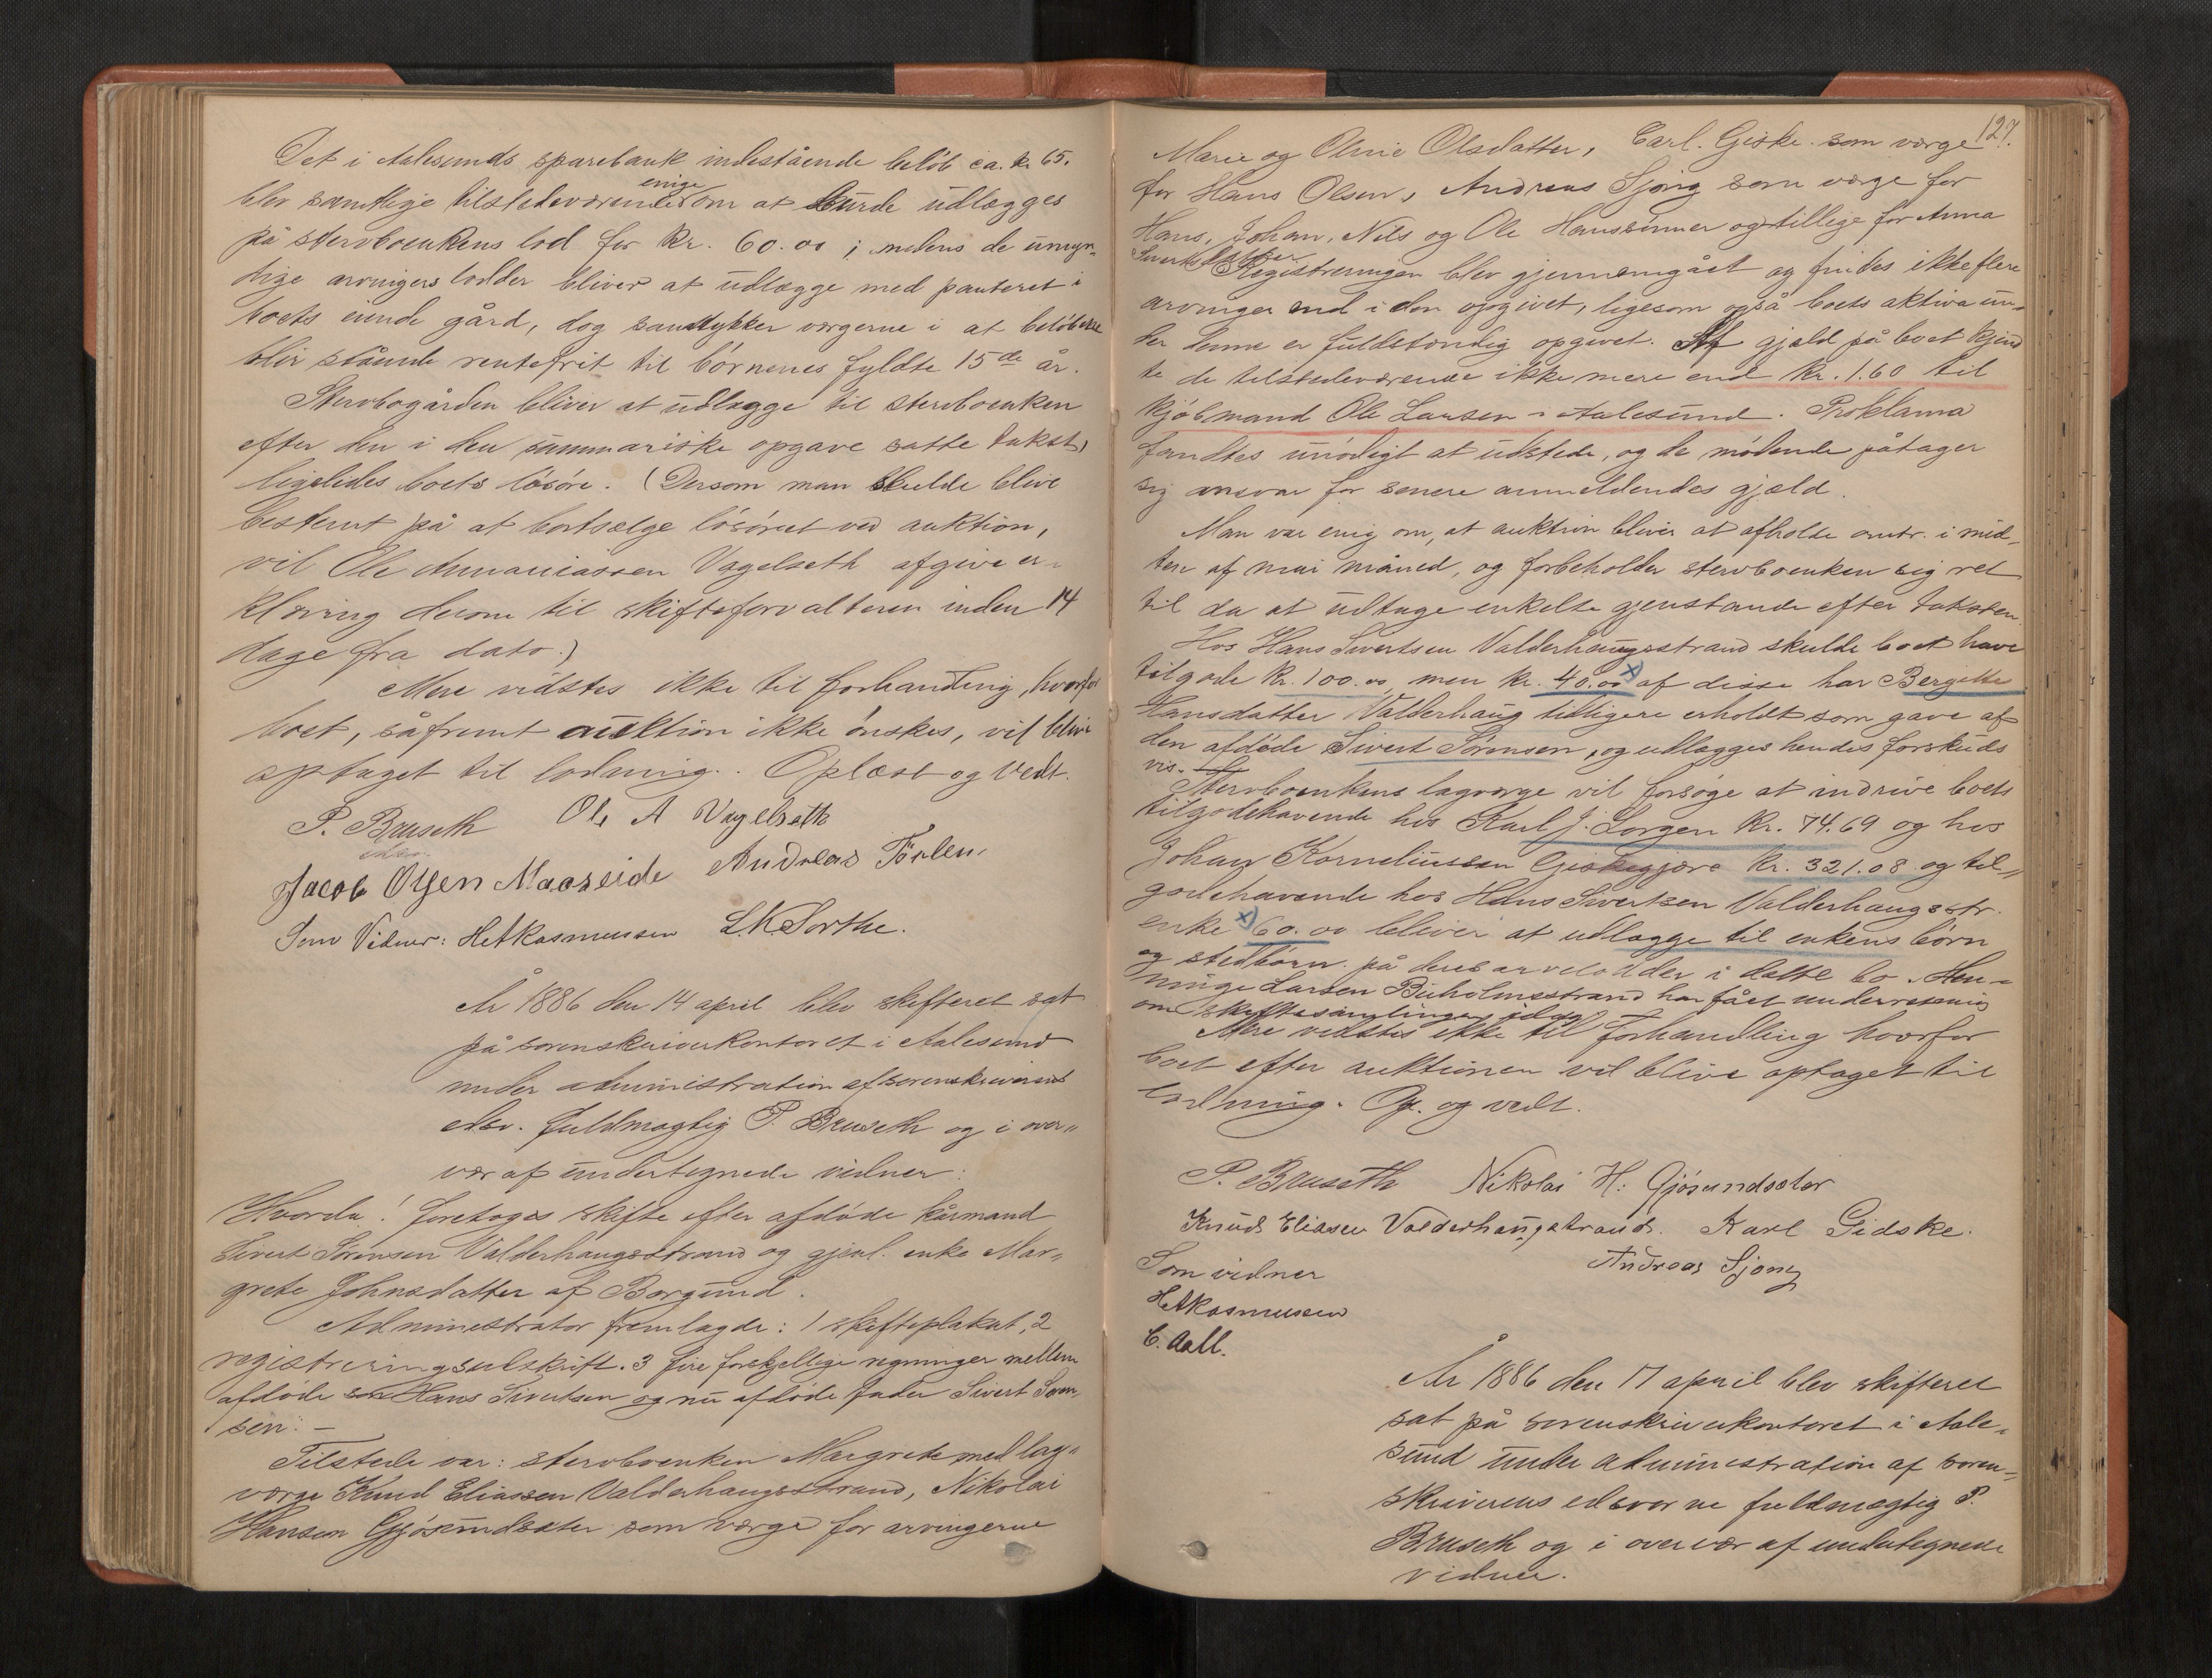 Det i Aalesunds sparebank indestående beløb ca. kr. 65.
enige
blev samtlige tilstedeværende om at burde udlægges
på stervboenkens lod for kr. 60.00; medens de umyn-
dige arvingers lodder bliver at udlægge med panteret i
boets eiende gård, dog samtykker værgerne i at beløbene
blir stående rentefrit til børnenes fyldte 15de år.
Stervbogården bliver at udlægge til stervboenken
efter den i den summariske opgave satte takst,
ligeledes boets løsøre. (Dersom man skulde blive
bestemt på at bortsælge løsøret ved auktion,
vil Ole Annaniassen Vagelseth afgive er-
klæring derom til skifteforvalteren inden 14
dage fra dato.)
Mere vidstes ikke til forhandling, hvorfor
boet, såfremt auktion ikke ønskes, vil blive
optaget til lodning. Oplæst og vedt.
P. Bruseth Ole A Vagelseth
Jacob Olsen Maaseide Andreas
Som Vidner: H A Rasmussen L.K. Sorthe.
År 1886 den 14 april blev skifteret sat
på sorenskriverkontoret i Aalesund
under administration af sorenskriverens
edsv. fuldmægtig P. Bruseth og i over-
vær af undertegnede vidner:
Hvorda! foretoges skifte efter afdøde kårmand
Sivert Sørensen Valderhaugsstrand og gjenl. enke Mar-
grete Johnsdatter af Borgund.
Administrator fremlagde: 1 skifteplakat, 2
registreringsudskrift. 3 fire forskjellige regninger mellem
afdøde søn Hans Sivertsen og nu afdøde fader Sivert Søren-
sen: -
Tilstede var: stervboenken Margrete med lag-
værge Knud Eliassen Valderhaugsstrand, Nikolai
Hansen Gjøsundsæter som værge for arvingerne
127.
Marie og Oline Olsdatter, Carl. Giske som værge
for Hans Olsen, Andreas Sjong som værge for
Hans, Johan, Nils og Ole Hanssønner og tillige for Anna
Sivertsdatter
Registreringen blev gjennemgået og findes ikke flere
arvinger end i den opgivet, ligesom også boets aktiva un-
der denne er fuldstændig opgivet. Af gjæld på boet kjend
te de tilstedeværende ikke mere end kr. 1.60 til
kjøbmand Ole Larsen i Aalesund. Proklama
fandtes unødigt at udstede, og de mødende påtager
sig ansvar for senere anmeldendes gjæld.
Man var enig om, at auktion bliver at afholde omtr. i mid-
ten af mai måned, og forbeholder stervboenken sig ret
til da at udtage enkelte gjenstande efter taksten.
Hos Hans Sivertsen Valderhaugsstrand skulde boet have
tilgode kr. 100.00, men kr. 40.00 x) af disse har Bergitte
Hansdatter Valderhaug tidligere erholdt som gave af
den afdøde Sivert Sørensen, og udlægges hendes forskuds
vis.
Stervboenkens lagværge vil forsøge at indrive boets
tilgodehavende hos Karl J. Sorgen kr. 74.69 og hos
Johan Korneliussen Giskegjære kr. 321.08 og til-
godehavende hos Hans Sivertsen Valderhaugsstr.
enke x) 60.00 bliver at udlægge til enkens børn
og stedbørn på deres arvelodder i dette bo. Hen-
ninge Larsen Buholmsstrand har fået underretning
om skiftesamlingen idag
Mere vidstes ikke til forhandling hvorfor
boet efter auktionen vil blive optaget til
lodning. Op. og vedt.
P. Bruseth Nikolai H: Gjøsundsæter
Knud Eliasen Valderhaugstrand. Karl Gidske.
Som vidner Andreas Sjong
H A Rasmussen
C. Aall.
År 1886 den 17 april blev skifteret
sat på sorenskriverkontoret i Aale-
sund under administration af soren-
skriverens edsvorne fuldmægtig P.
Bruseth og i overvær af undertegnede
vidner.